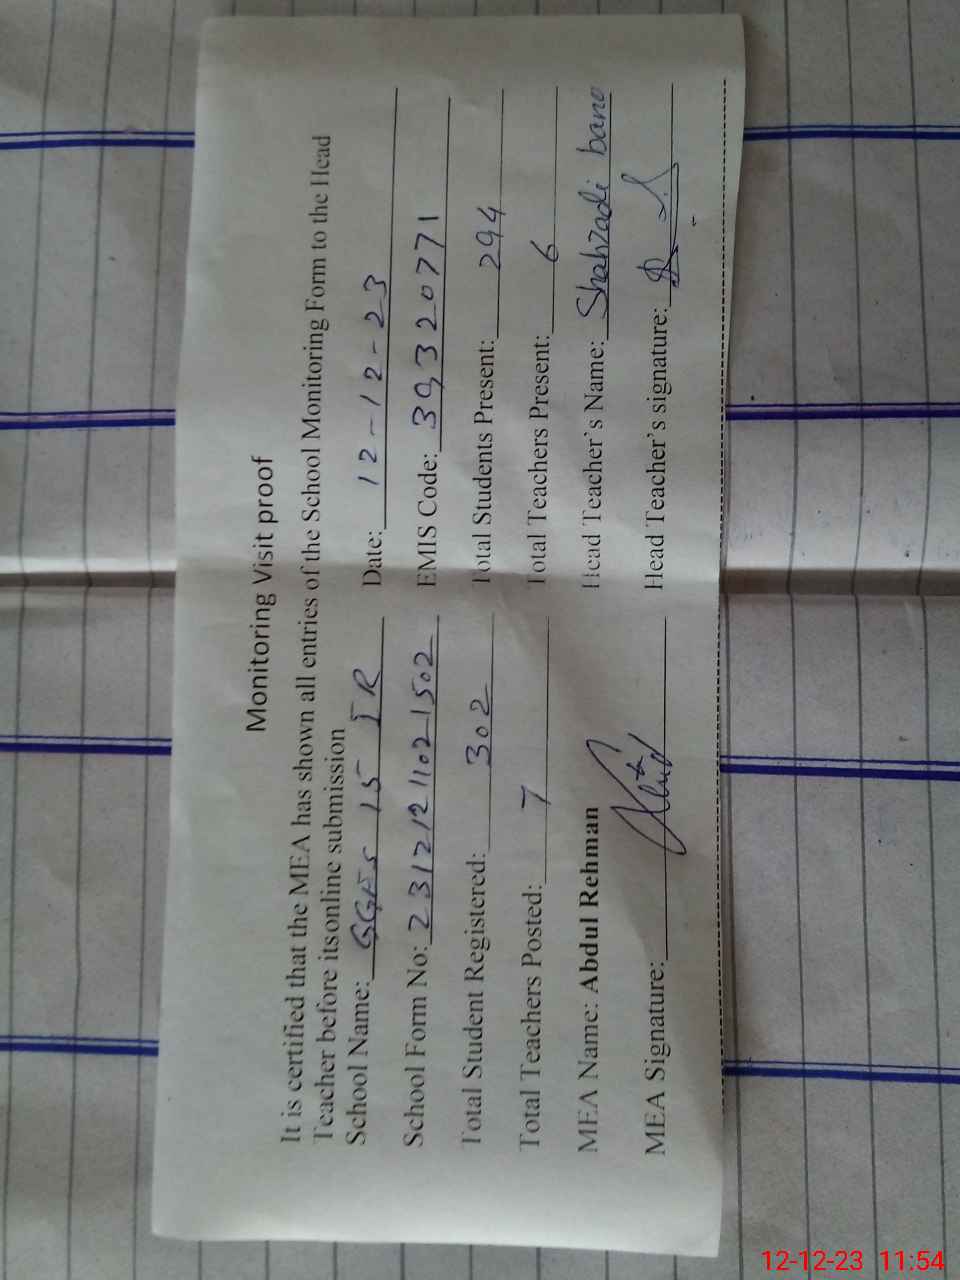 Monitoring Visit proof
It is certified that the MEA has shown all entries of the School Monitoring Form to the Head
Teacher before itsonline submission
School Name: GGES 15 IR Date: 12-12-23
School Form No: 23121211021502 EMIS Code: 39320771
Total Student Registered: 302 Total Students Present: 294
Total Teachers Posted: 7 Total Teachers Present: 6
MEA Name: Abdul Rehman Head Teacher's Name: Shahzadi bano
MEA Signature: Head Teacher's signature:
12-12-23 11:54